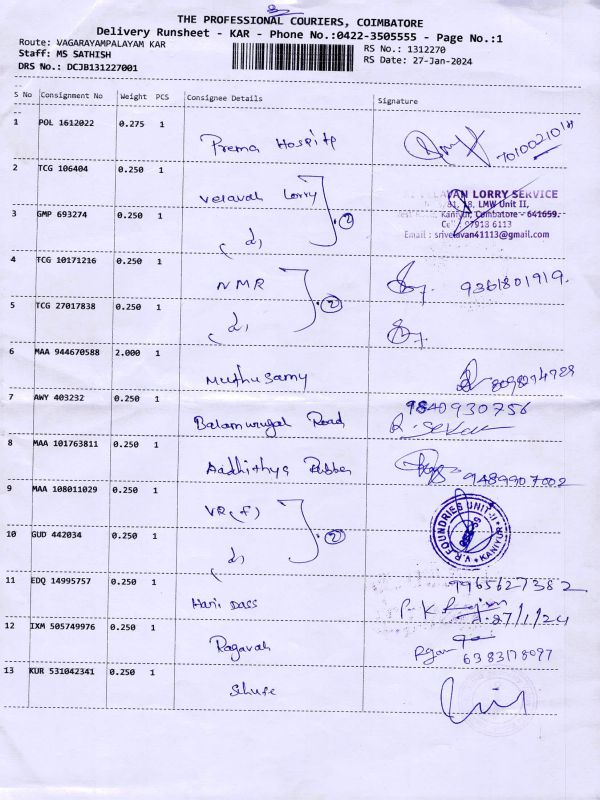 THE PROFESSIONAL COURIERS, COIMBATORE
Delivery Runsheet - KAR - Phone No.:0422-3505555 - Page No.:1
Route: VAGARAYAMPALAYAM KAR
RS No.: 1312270
Staff: MS SATHISH
RS Date: 27-Jan-2024
DRS No.: DCJB131227001
S No Consignment No Weight PCS Consignee Details Signature
1 POL 1612022 0.275 1 Prema Hospitp
2 TCG 106404 0.250 1 Velavah Lorry
VELAVAN LORRY SERVICE
LMW Unit II,
3 GMP 693274 0.250 1 (d,) 2
Kaniyur, Coimbatore - 641659.
97918 6113
Email : srivelavan41113@gmail.com
4 TCG 10171216 0.250 1 NMR 9361801919.
5 TCG 27017838 0.250 1 (d,) 2
6 MAA 944670588 2.000 1 Muthusamy
7 AWY 403232 0.250 1 Balamurugal Road 9840930756
R. Sekar
8 MAA 101763811 0.250 1 Aadhithya Rubber 9489907002
9 MAA 108011029 0.250 1 VR (F)
V.R. FOUNDRIES UNIT-II
KANIYUR
10 GUD 442034 0.250 1 (d,) 2
11 EDQ 14995757 0.250 1 Hari Dass 9965627382
P.K 27/1/24
12 IXM 505749976 0.250 1 Ragavah 6383178097
13 KUR 531042341 0.250 1